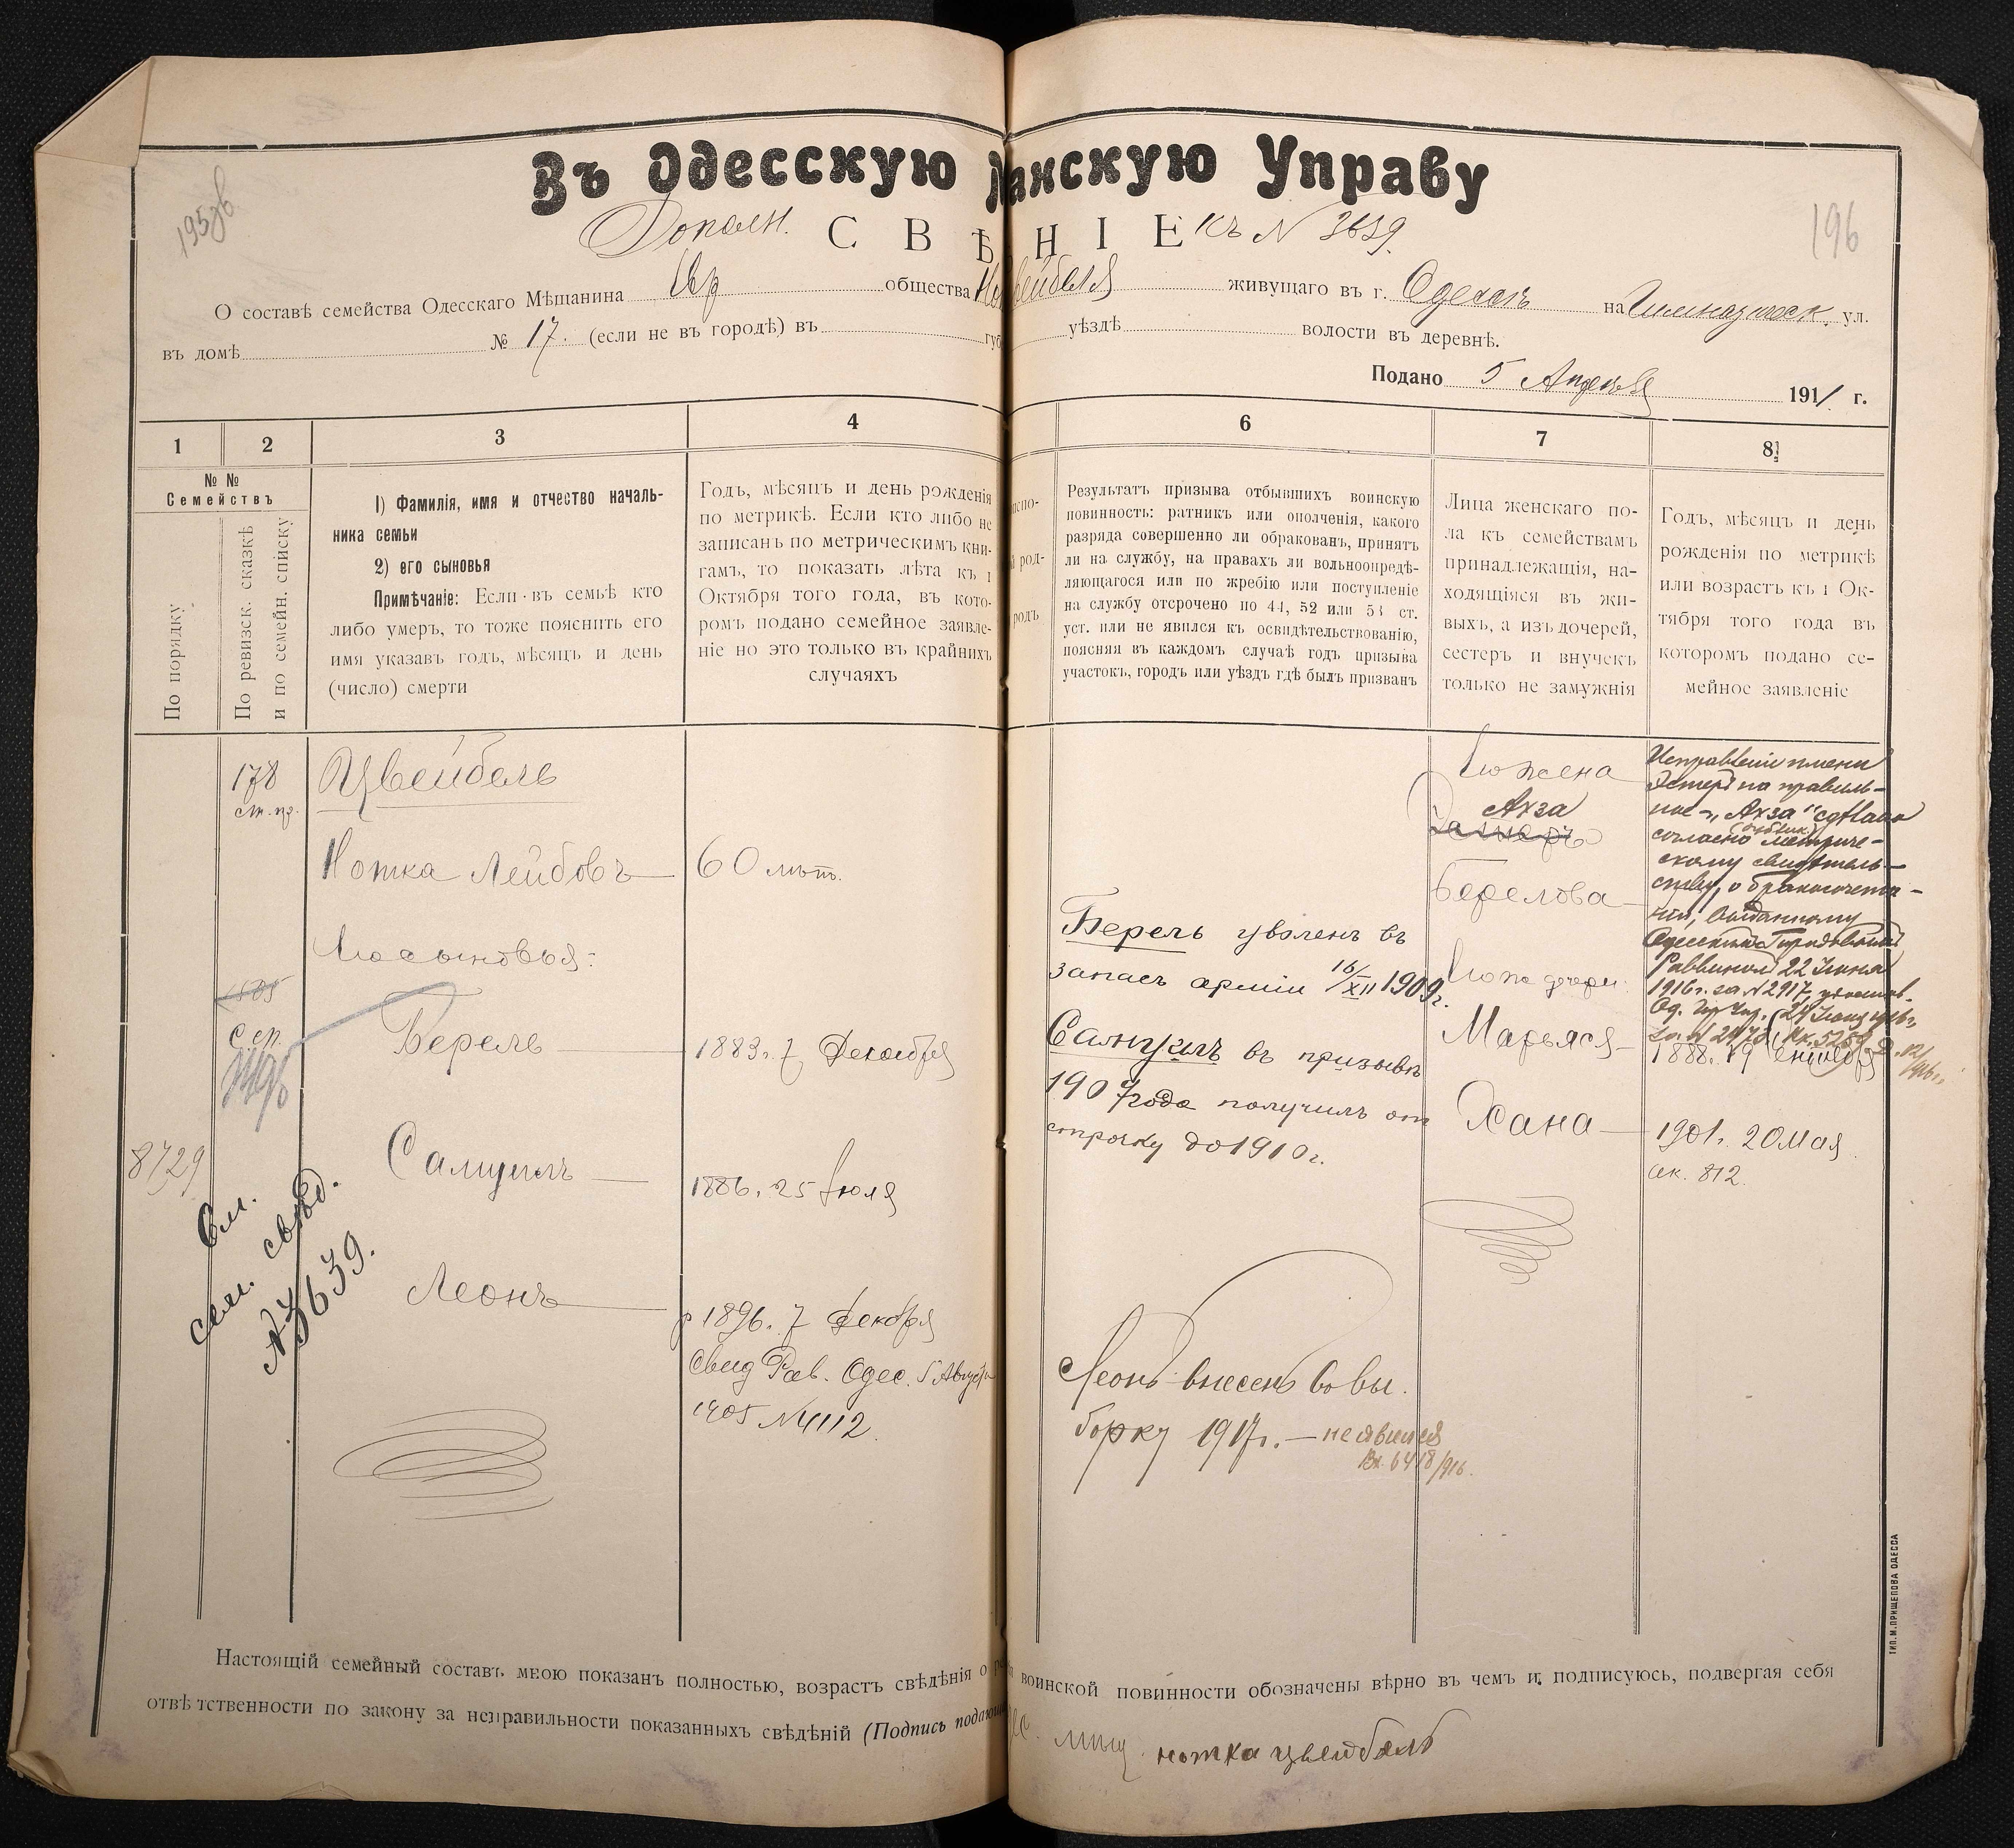 195об
196
Въ Одесскую анскую Управу
Дополн. СВѢ НІЕ къ № 3639.
О составѣ семейства Одесскаго Мѣщанина Евр общества живущаго въ г. Одессѣ на Гимназическ. ул.
въ домѣ № 17. (если не въ городѣ) въ губ уѣздѣ волости въ деревнѣ.
Подано 5 Апрѣля 1911 г.
1
2
3
4
6
7
8
№ №
Семействъ
По порядку
По ревизск. сказкѣ
и по семейн. списку
1) Фамилія, имя и отчество началь-
ника семьи
2) его сыновья
Примѣчаніе: Если въ семьѣ кто
либо умеръ, то тоже пояснить его
имя указавъ годъ, мѣсяцъ и день
(число) смерти
Годъ, мѣсяцъ и день рожденія
по метрикѣ. Если кто либо не
записанъ по метрическимъ кни-
гамъ, то показать лѣта къ 1
Октября того года, въ кото-
ромъ подано семейное заявле-
ніе но это только въ крайнихъ
случаяхъ
Результатъ призыва отбывшихъ воинскую
повинность: ратникъ или ополченія, какого
разряда совершенно ли обракованъ, принятъ
ли на службу, на правахъ ли вольноопредѣ-
ляющагося или по жребію или поступленіе
на службу отсрочено по 44, 52 или 53 ст.
уст. или не явился къ освидѣтельствованію,
поясняя въ каждомъ случаѣ годъ призыва
участокъ, городъ или уѣздъ гдѣ былъ призванъ
Лица женскаго по-
ла къ семействамъ
принадлежащія, на-
ходящіяся въ жи-
выхъ, а изъ дочерей,
сестеръ и внучекъ
только не замужнія
Годъ, мѣсяцъ и день
рожденія по метрикѣ
или возрастъ къ 1 Ок-
тября того года въ
которомъ подано се-
мейное заявленіе
178
ст. пр.
Цвейбель
Нотка Лейбовъ 60 лѣтъ.
Его сыновья:
1885
с.сп.
Берель 1883. 7 Декабря
8729
Самуилъ 1886. 25 Іюля
См.
сем. свѣд.
№ 3639.
Леонъ р 1896. 7 Декабря
Свид Рав. Одес. 5 Август
1905 № 4112.
Берель уволенъ въ
запасъ арміи 16/XII 1909г.
Самуилъ въ призывъ
1907 года получилъ от
строчку до 1910 г.
Леонъ внесенъ во вы.
борку 1917г. — не явился
Вх. 6418/916.
Его жена
Ахза
Берелова
Его дочери:
Марьяся 1888. 19 Сентября
Хана 1901. 20 Мая
ак. 812.
Исправленіе имени
Эстеръ на правиль-
ное „Ахза" сдѣлано
согласно метриче-
скому свидѣтель-
ству, о бракосочета-
ніи, выданному
Одесскимъ Городовымъ
Раввиномъ 22 Іюня
1916 г. за № 2917,
Настоящій семейный составъ мною показанъ полностью, возрастъ свѣдѣнія о воинской повинности обозначены вѣрно въ чемъ и подписуюсь, подвергая себя
отвѣтственности по закону за неправильности показанныхъ свѣдѣній (Подпись подающ
мѣщ. нотка цвейбель
ТИП. М. ПРИЩЕПОВА ОДЕССА